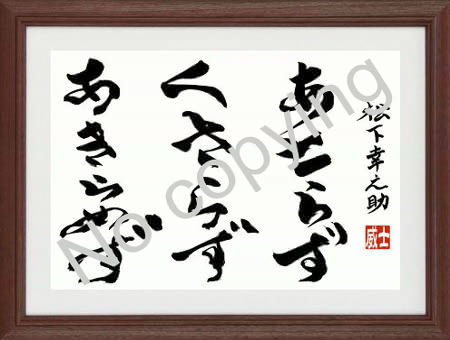 松下幸之助
威士
あせらず
くさらず
あきらめず
No copying